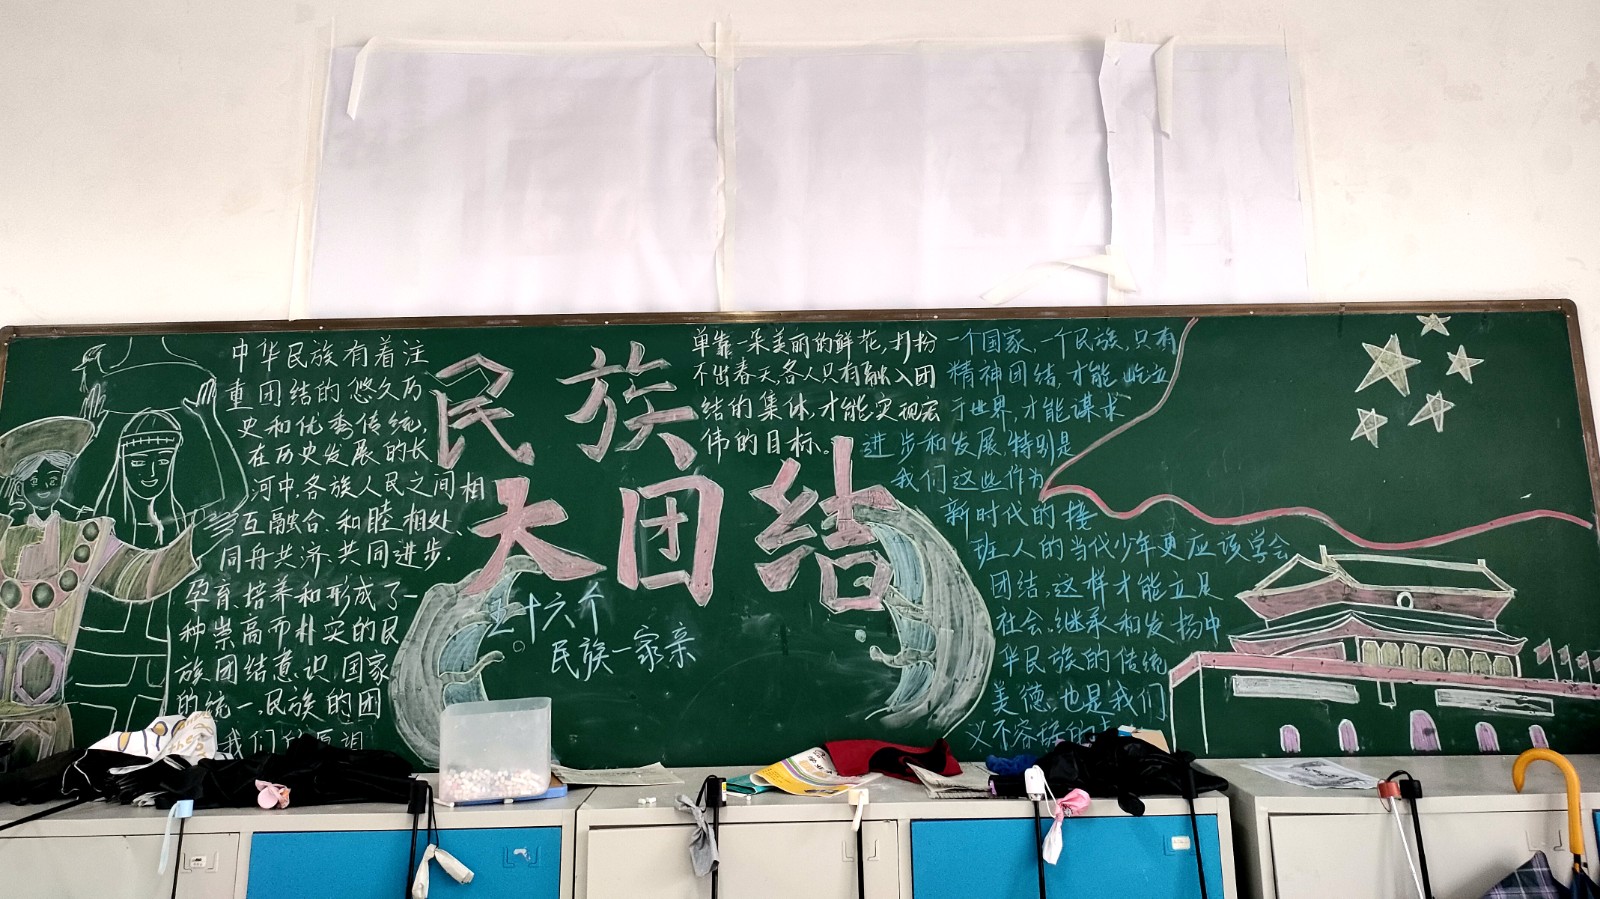 中华民族有着注
重团结的悠久历
史和优秀传统,
在历史发展的长
河中,各族人民之间相
互融合、和睦相处、
同舟共济、共同进步.
孕育、培养和形成了一
种崇高而朴实的民
族团结意识,国家
的统一,民族的团
我们
民族
大团结
五十六个
民族一家亲
单靠一朵美丽的鲜花,打扮
不出春天,各人只有融入团
结的集体,才能实现宏
伟的目标。
一个国家,一个民族,只有
精神团结,才能屹立
于世界,才能谋求
进步和发展,特别是
我们这些作为
新时代的接
班人的当代少年更应该学会
团结,这样才能立足
社会。继承和发扬中
华民族的传统
美德,也是我们
义不容辞的